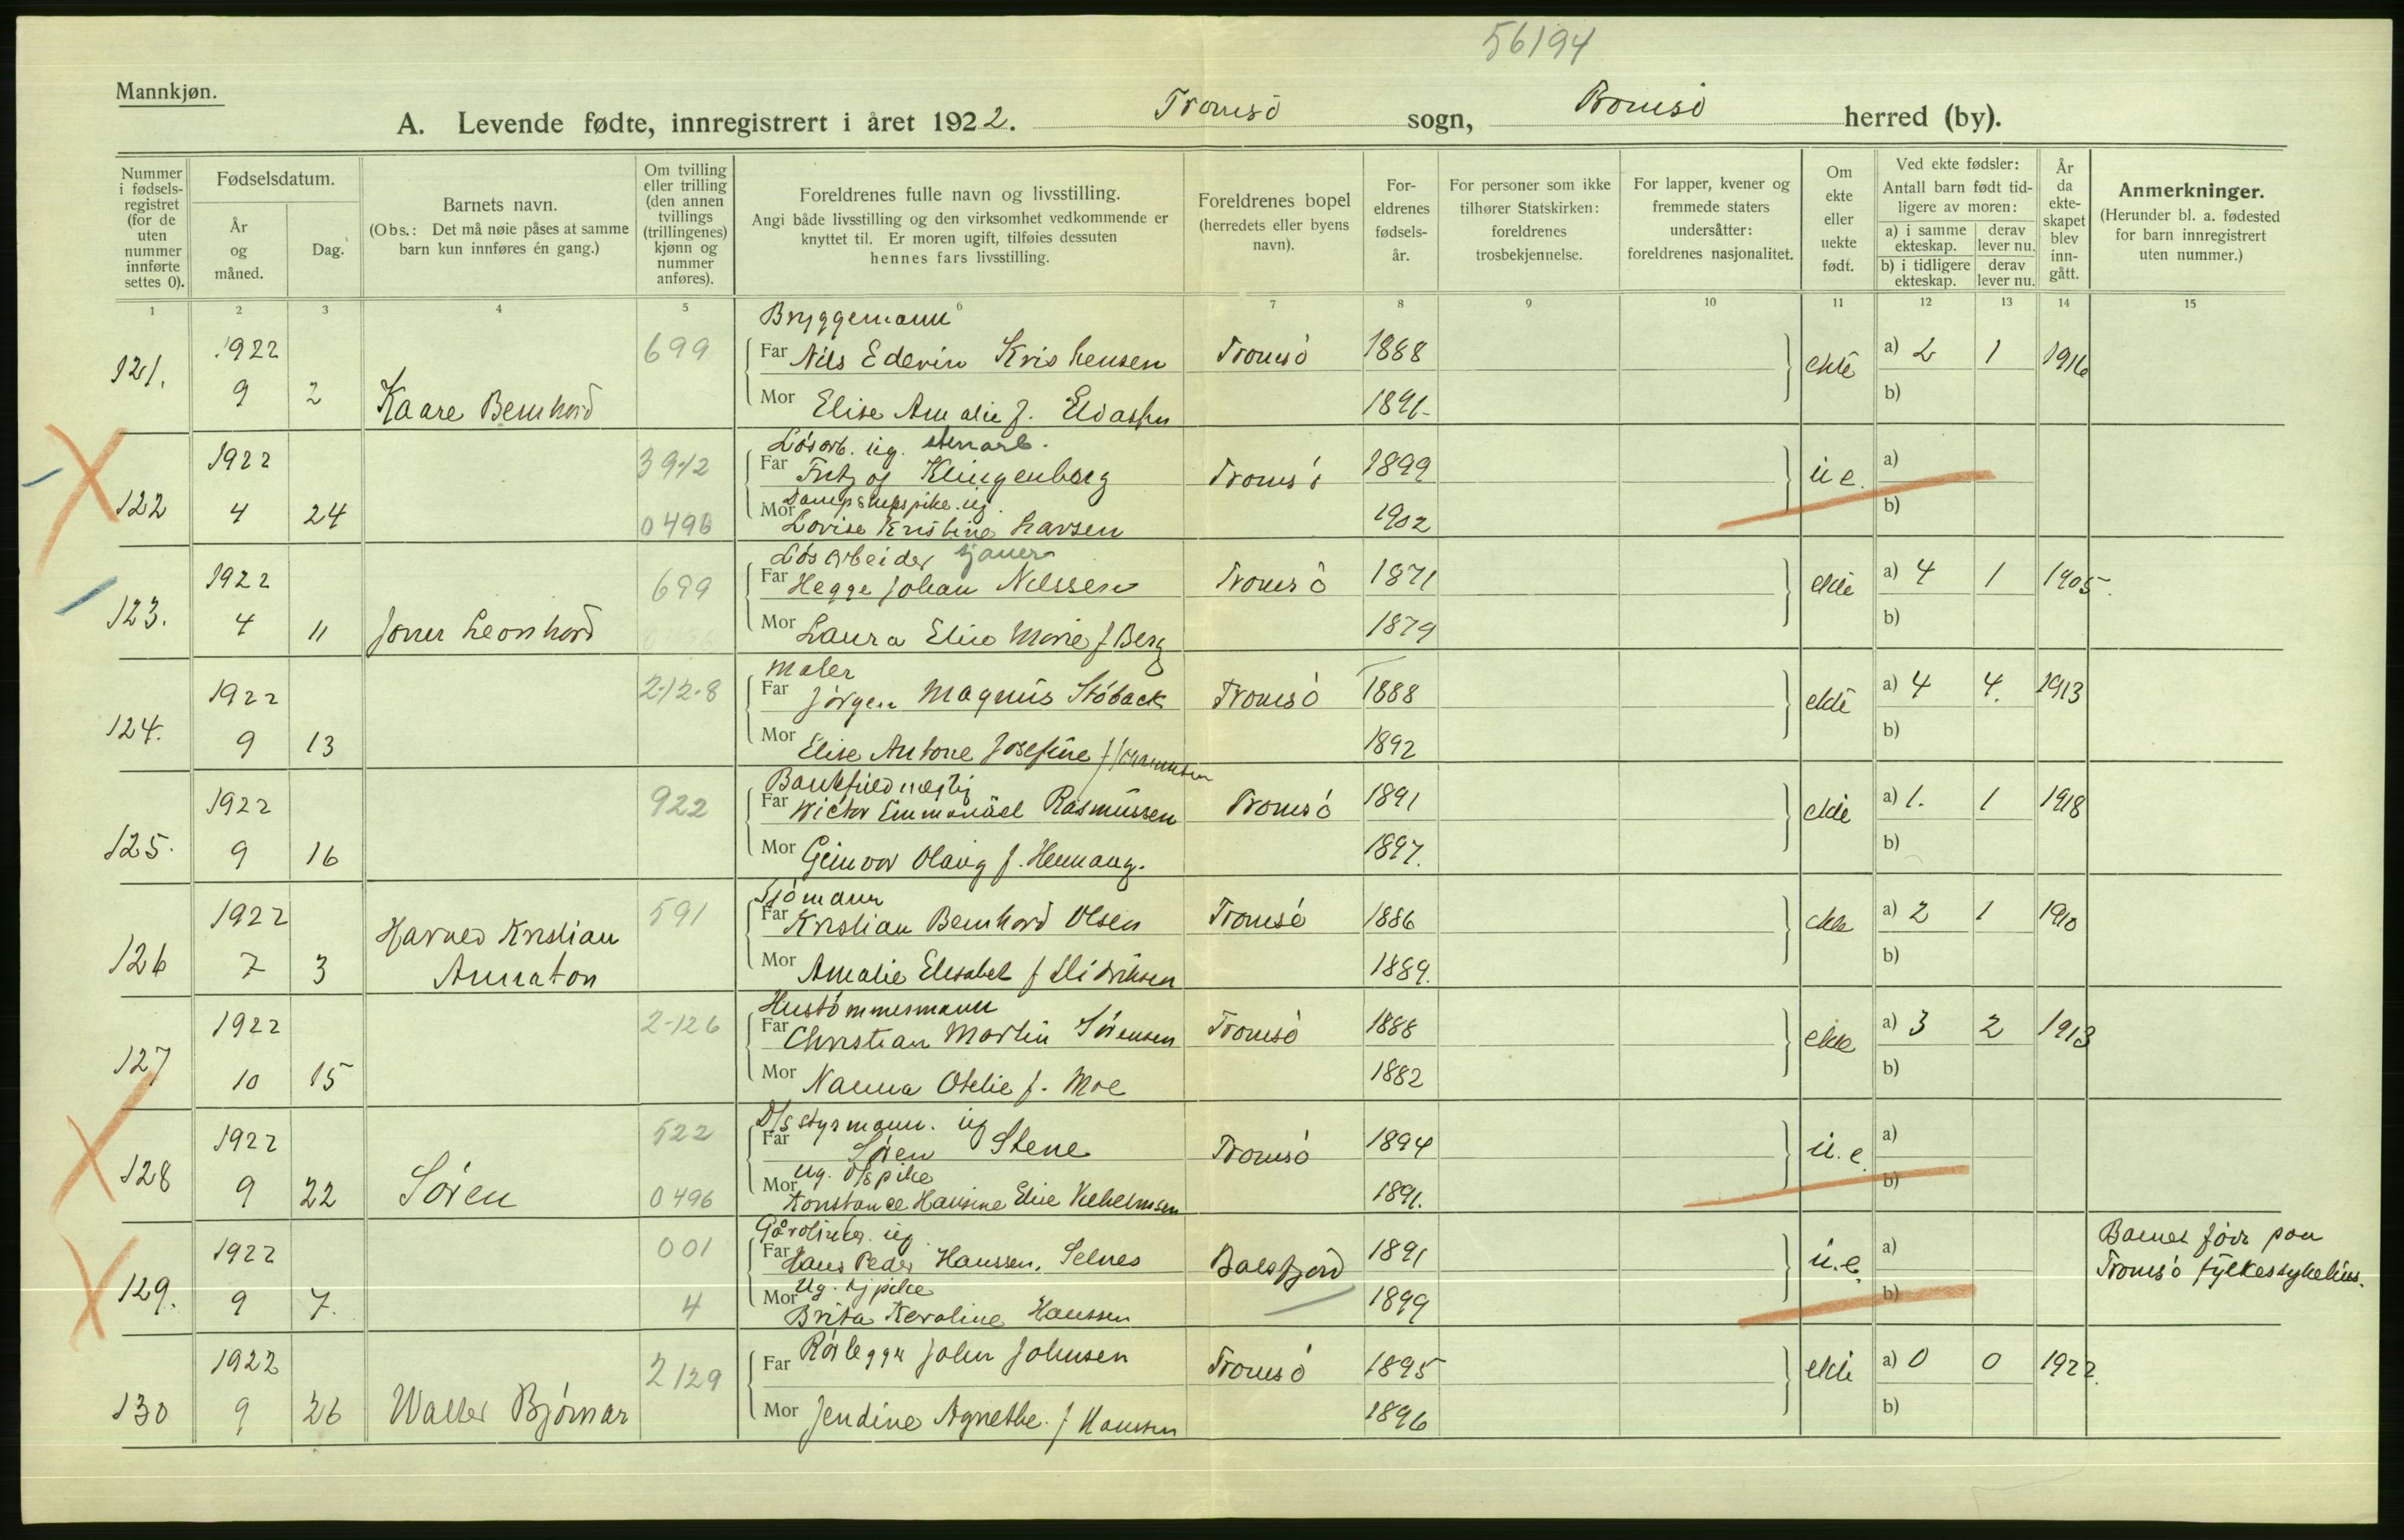 56194
Mannkjøn.
A. Levende fødte, innregistrert i året 1922. Tromsö sogn, Tromsö herred (by).
Nummer i fødsels-registret (for de uten nummer innførte settes 0).
Fødselsdatum.
År og måned.
Dag.
Barnets navn.
(Obs.: Det må nøie påses at samme barn kun innføres én gang.)
Om tvilling eller trilling (den annen tvillings (trillingenes) kjønn og nummer anføres).
Foreldrenes fulle navn og livsstilling.
Angi både livsstilling og den virksomhet vedkommende er knyttet til. Er moren ugift, tilføies dessuten hennes fars livsstilling.
Foreldrenes bopel (herredets eller byens navn).
For-eldrenes fødsels-år.
For personer som ikke tilhører Statskirken: foreldrenes trosbekjennelse.
For lapper, kvener og fremmede staters undersåtter: foreldrenes nasjonalitet.
Om ekte eller uekte født.
Ved ekte fødsler:
Antall barn født tid-ligere av moren:
a) i samme ekteskap.
derav lever nu.
b) i tidligere ekteskap.
derav lever nu.
År da ekte-skapet blev inn-gått.
Anmerkninger.
(Herunder bl. a. fødested for barn innregistrert uten nummer.)
1 2 3 4 5 6 7 8 9 10 11 12 13 14 15
Bryggemann
121. 1922 699 Far Nils Edevin Kristensen Tromsö 1888 ekte a) 2 1 1916
9 2 Kaare Bernhard Mor Elise Amalie f. 1896 b)
Lösarb. ug. stenarb.
122 1922 3912 Far Klingenberg Tromsö 1899 u e. a)
4 24 0496 Mor Dampskibspike. ug. Lovise Kristine Larsen 1902 b)
Lösarbeider sjauer
123. 1922 699 Far Hegge Johan Nilssen Tromsö 1871 ekte a) 4 1 1905.
4 11 Leonhard Mor Laura Elise Marie f Berg 1879 b)
Maler
124. 1922 2-12-8 Far Jörgen Magnus Stöback Tromsö 1888 ekte a) 4 4. 1913
9 13 Mor Elise Antone Josefine f 1892 b)
125. 1922 922 Far Wictor Emmanuel Rasmussen Tromsö 1891 ekte a) 1. 1 1918
9 16 Mor Olaug f. 1897. b)
Sjömann
126 1922 Harved Kristian 591 Far Kristian Bernhard Olsen Tromsö 1886 ekte a) 2 1 1910
7 3 Mor Amalie Elisabet f Didriksen 1889. b)
Hustömmermann
127 1922 2-126 Far Christian Martin Sörensen Tromsö 1888 ekte a) 3 2 1913
10 15 Mor Nanna Otelie f. Moe 1882 b)
D/S styrmann. ug
128 1922 522 Far Sören Stene Tromsö 1894 u. e. a)
9 22 Sören 0496 Mor Ug. D/S pike Konstance Hansine Elise Vilhelmsen 1891. b)
ug
129. 1922 001 Far Hans Peder Hanssen, Selnes Balsfjord 1891 u. e. a) Barnet född paa
9 7. 4 Mor Ug. tj pike Brita Karoline Hanssen 1899 b) Tromsö fylkessykehus.
130 1922 2129 Far Rörlegger John Johnsen Tromsö 1895 ekte a) 0 0 1922.
9 26 Walter Björnar Mor Jendine Agnethe. f Hanssen 1896 b)